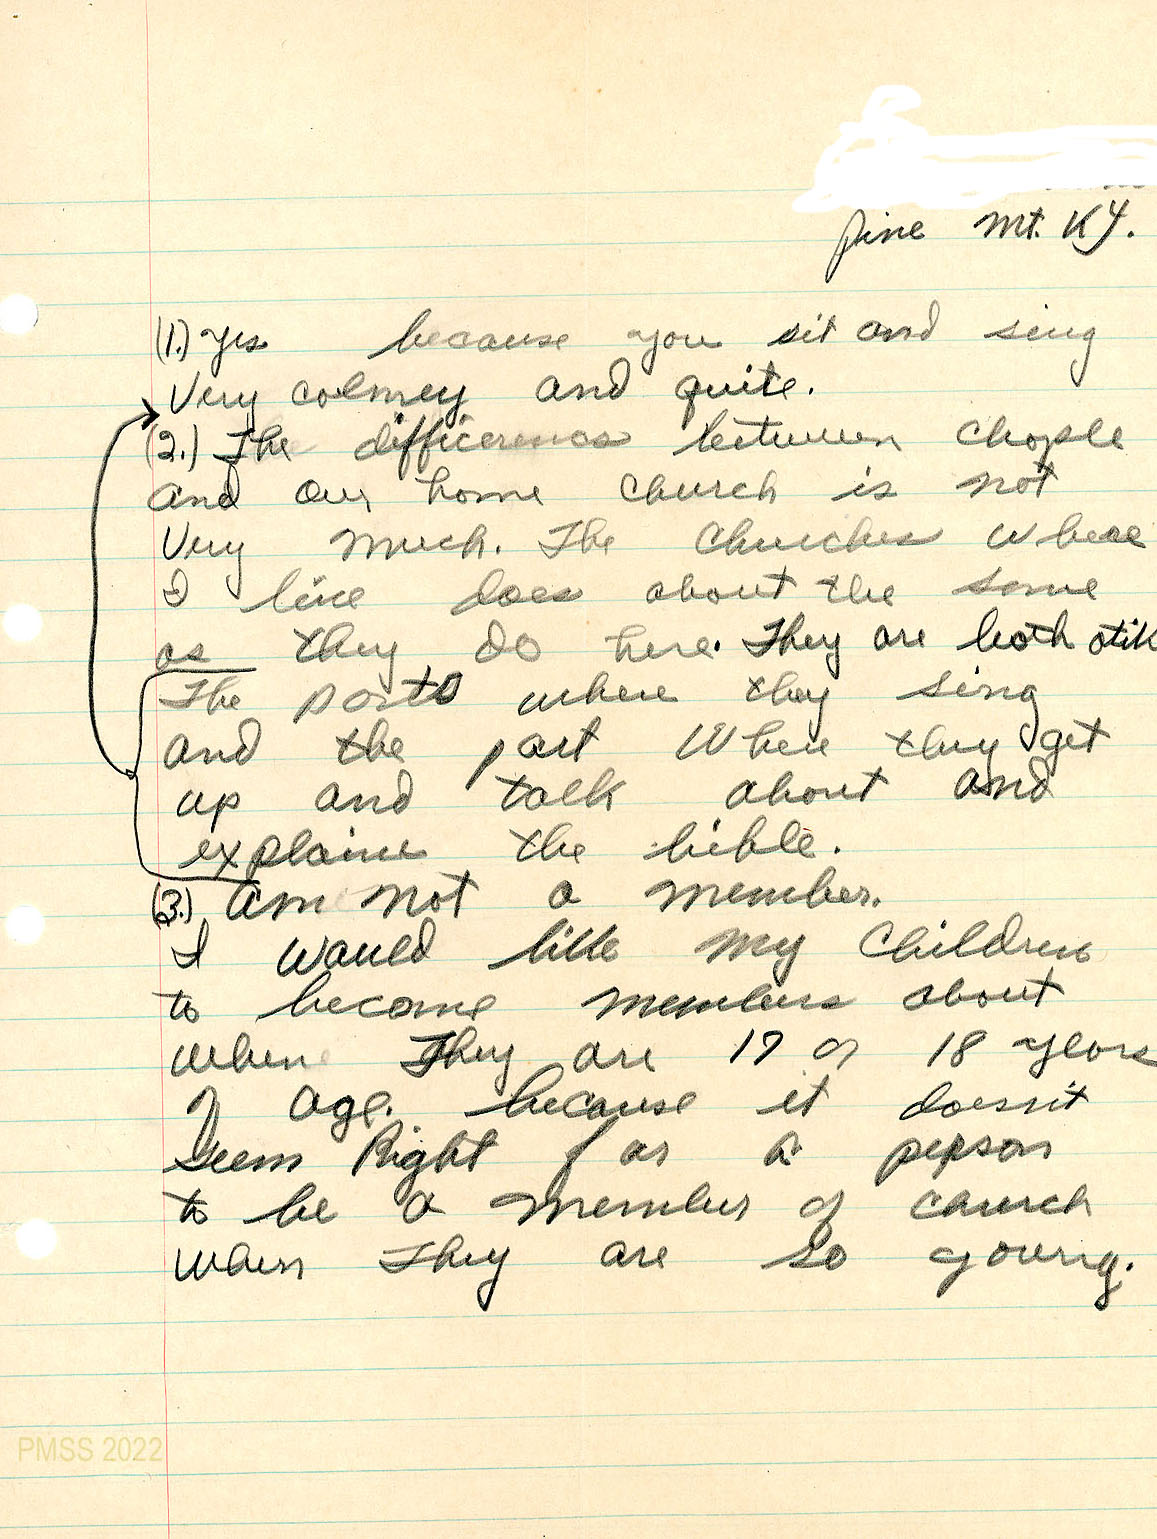 Pine Mt. Ky.
(1.) Yes because you sit and sing
Very colmey and quite.
(2.) The difficerence between chaple
and our home church is not
Very much. The Churches where
I live does about the same
as they do here. They are both alik
The parts where they sing
and the part Where they get
up and talk about and
explaine the bible.
(3.) am not a member.
I would like my Children
to become members about
when They are 17 or 18 years
of age. because it doesn't
Seem Right for a person
to be a member of church
when They are so young.
PMSS 2022